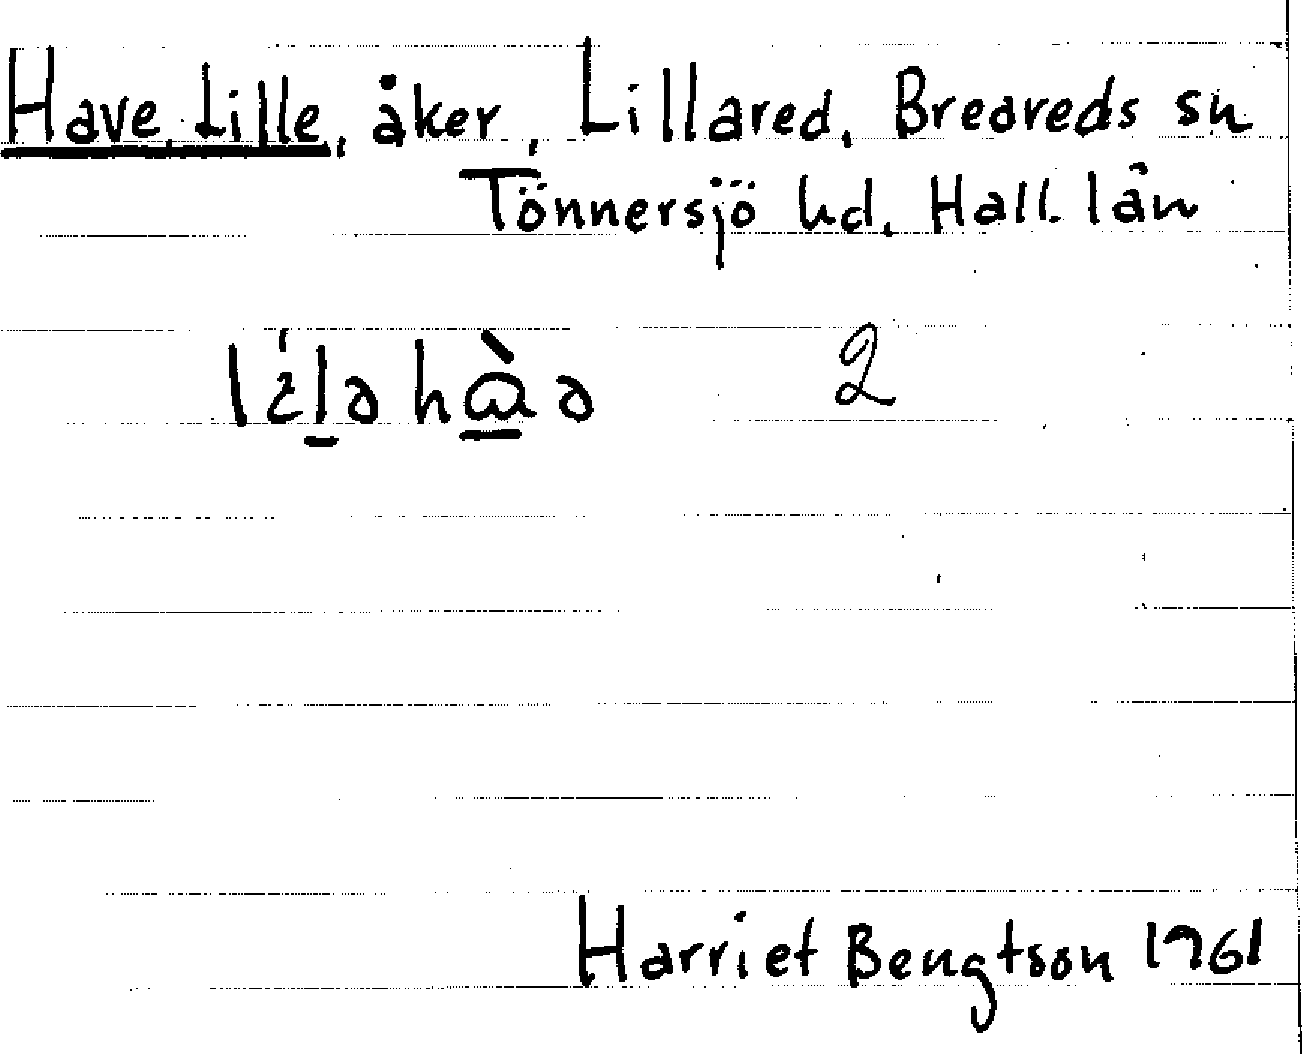 Have, Lille, åker, Lillared, Breareds sn
Tönnersjö hd. Hall. län
lílə hɑ̀ə 2
Harriet Bengtson 1961